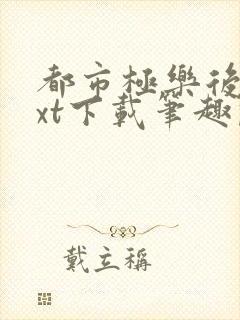 都市極樂後
xt下載筆趣
戴立稱